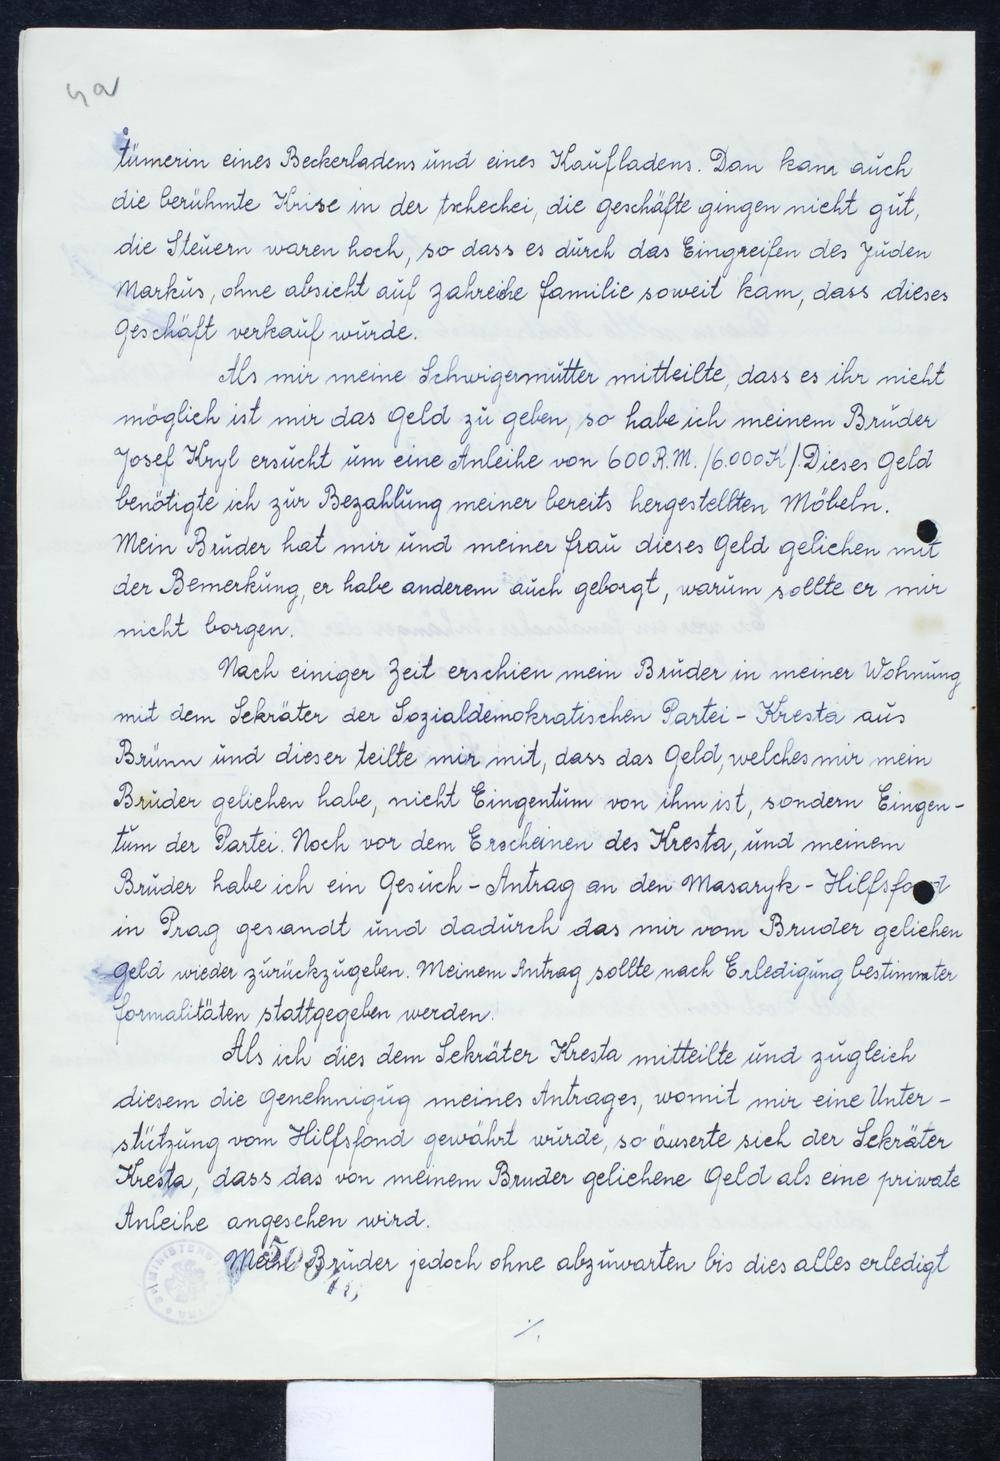 4a
tümerin eines Beckerladens und eines Kaufladens. Dan kam auch
die berühmte Krise in der tschechei, die geschäfte gingen nicht gut,
die Steuern waren hoch, so dass es durch das Eingreifen des Juden
Markus, ohne absicht auf zahreiche familie soweit kam, dass dieses
Geschäft verkauf wurde.
Als mir meine Schwigermutter mitteilte, dass es ihr nicht
möglich ist mir das Geld zu geben, so habe ich meinem Bruder
Josef Kryl ersucht um eine Anleihe von 600 R.M. /6.000 K/. Dieses Geld
benötigte ich zur Bezahlung meiner bereits hergestellten Möbeln.
Mein Bruder hat mir und meiner frau dieses Geld geliehen mit
der Bemerkung, er habe anderem auch geborgt, warum sollte er mir
nicht borgen.
Nach einiger Zeit erschien mein Bruder in meiner Wohnung
mit dem Sekräter der Sozialdemokratischen Partei - Kresta aus
Brünn und dieser teilte mir mit, dass das Geld, welches mir mein
Bruder geliehen habe, nicht Eingentum von ihm ist, sondern Eingen-
tum der Partei. Noch vor dem Erscheinen des Kresta, und meinem
Bruder habe ich ein Gesuch - Antrag an den Masaryk - Hilfsfond
in Prag gesandt und dadurch das mir vom Bruder geliehen
Geld wieder zurückzugeben. Meinem Antrag sollte nach Erledigung bestimmter
formalitäten stattgegeben werden.
Als ich dies dem Sekräter Kresta mitteilte und zugleich
diesem die Genehmigug meines Antrages, womit mir eine Unter-
stützung vom Hilfsfond gewährt wurde, so äuserte sich der Sekräter
Kresta, dass das von meinem Bruder geliehene Geld als eine private
Anleihe angesehen wird.
Mein Bruder jedoch ohne abzuwarten bis dies alles erledigt
./.